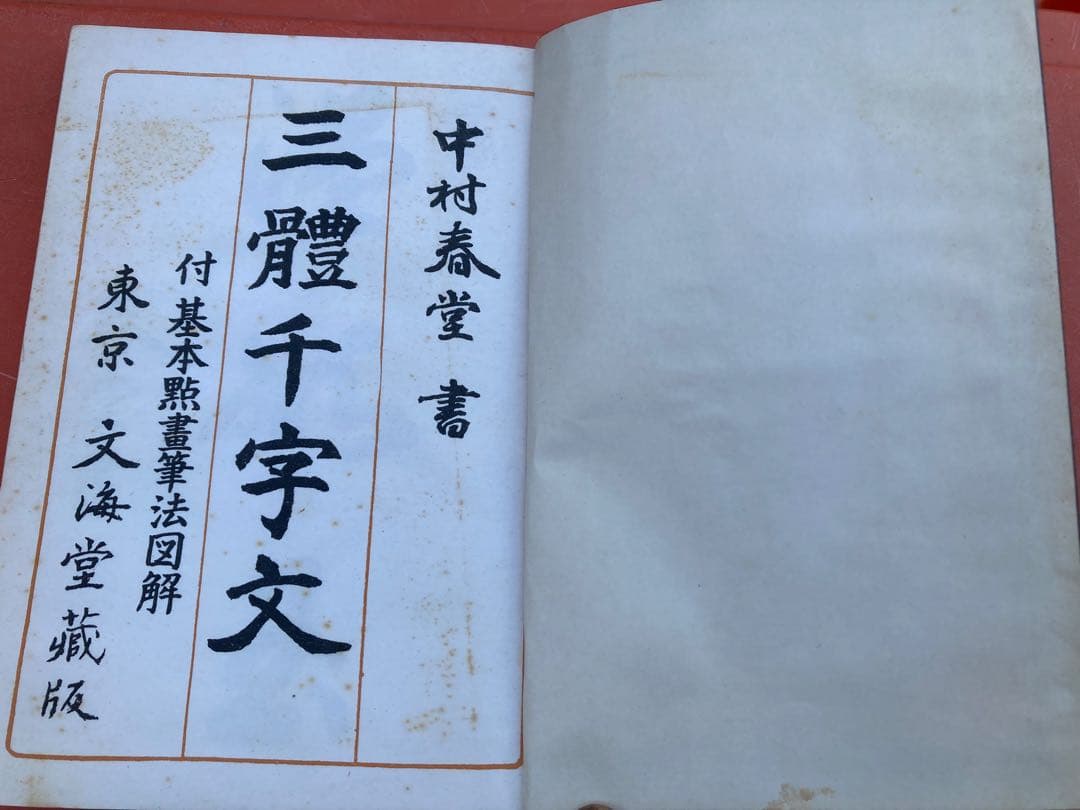 中村春堂 書
三體千字文
付基本點畫筆法図解
東京 文海堂藏版